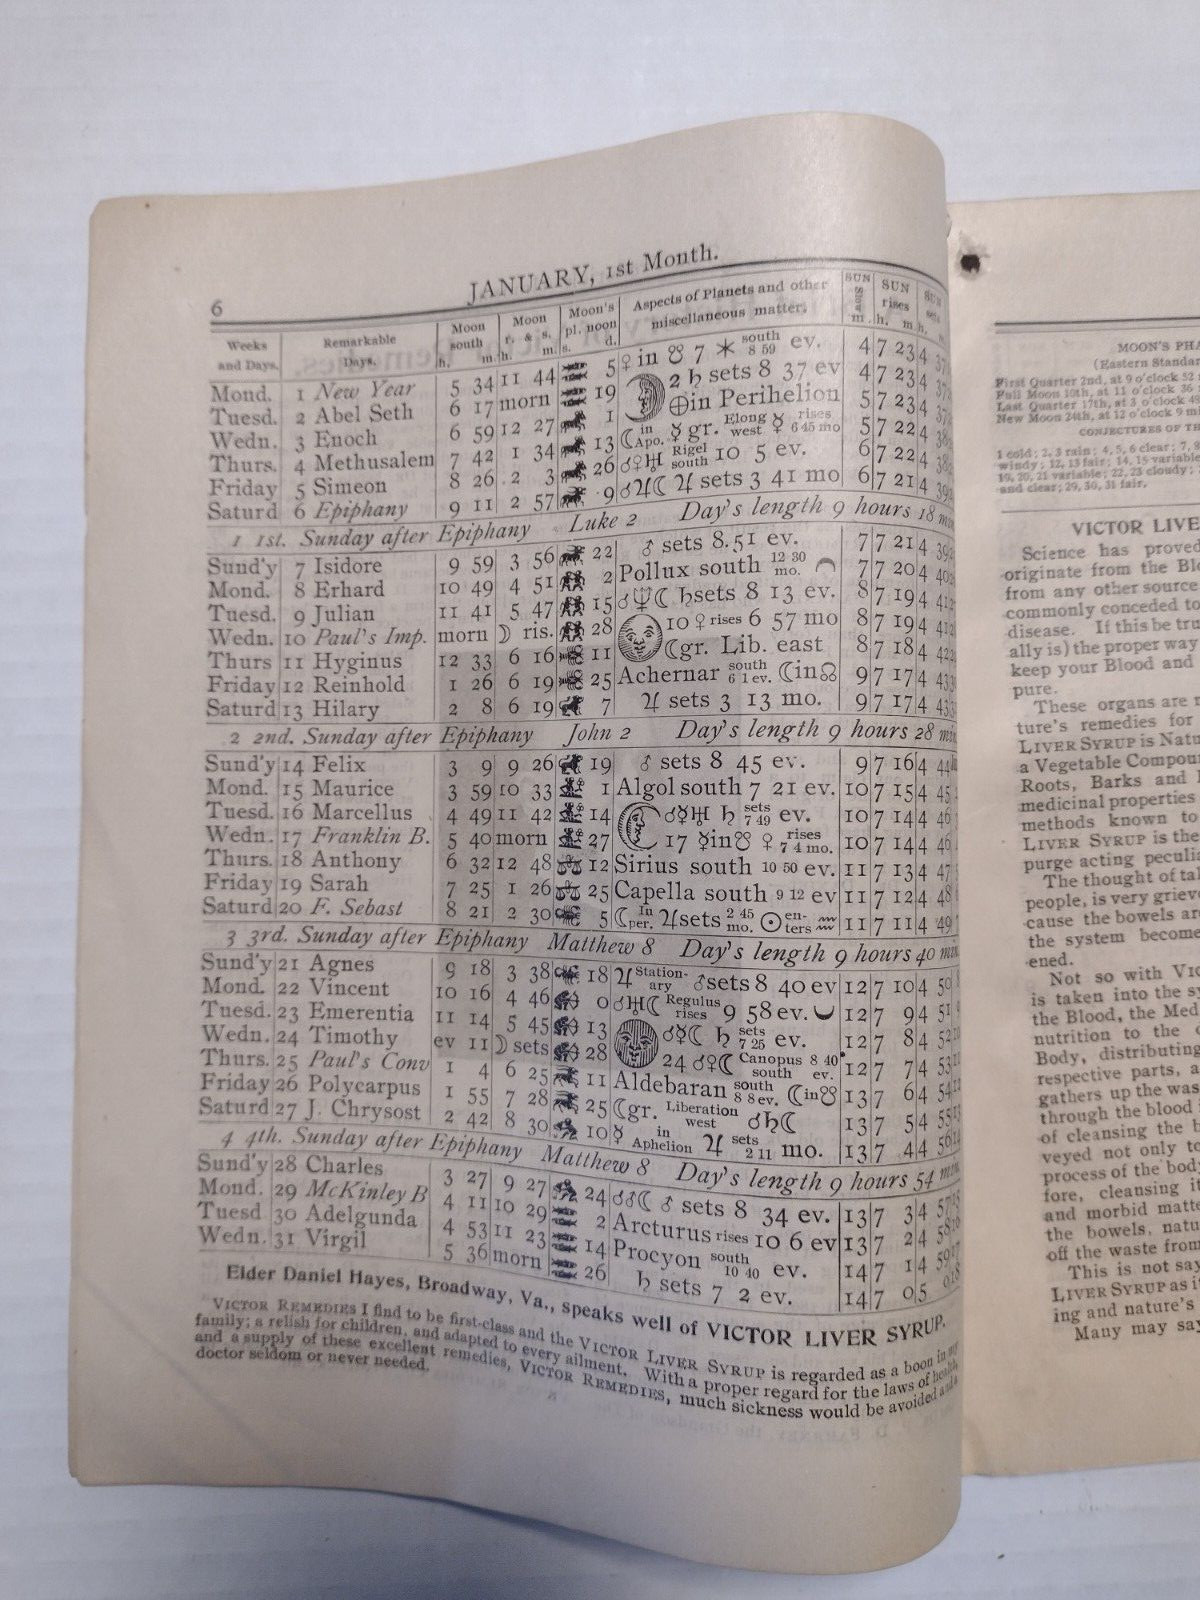 6
JANUARY, 1st Month.
Weeks and Days. Remarkable Days. Moon south h. m. Moon r. & s. h. m. Moon's pl. noon s. d. Aspects of Planets and other miscellaneous matter. SUN Slow m. SUN rises h. m. SUN sets h.
Mond. 1 New Year 5 34 11 44 5 ♀ in ☋ 7 ✶ south 8 59 ev. 4 7 23 4 37
Tuesd. 2 Abel Seth 6 17 morn 19 2 ♄ sets 8 37 ev 4 7 23 4 37
Wedn. 3 Enoch 6 59 12 27 1 ⊕ in Perihelion 5 7 23 4 37
Thurs. 4 Methusalem 7 42 1 34 13 ☾ in Apo. ☿ gr. Elong west ☿ rises 6 45 mo 5 7 22 4 38
Friday 5 Simeon 8 26 2 3 26 ☌♀♅ Rigel south 10 5 ev. 6 7 22 4 38
Saturd 6 Epiphany 9 11 2 57 9 ☌♃☾ ♃ sets 3 41 mo 6 7 21 4 39
1 1st. Sunday after Epiphany Luke 2 Day's length 9 hours 18 min
Sund'y 7 Isidore 9 59 3 56 22 ♂ sets 8.51 ev. 7 7 21 4 39
Mond. 8 Erhard 10 49 4 51 2 Pollux south 12 30 mo. 7 7 20 4 40
Tuesd. 9 Julian 11 41 5 47 15 ☌♆☾ ♄ sets 8 13 ev. 8 7 19 4 41
Wedn. 10 Paul's Imp. morn ☽ ris. 28 10 ♀ rises 6 57 mo 8 7 19 4 41
Thurs 11 Hyginus 12 33 6 16 11 ☾gr. Lib. east 8 7 18 4 42
Friday 12 Reinhold 1 26 6 19 25 Achernar south 6 1 ev. ☾in☊ 9 7 17 4 43
Saturd 13 Hilary 2 8 6 19 7 ♃ sets 3 13 mo. 9 7 17 4 43
2 2nd. Sunday after Epiphany John 2 Day's length 9 hours 28 min
Sund'y 14 Felix 3 9 9 26 19 ♂ sets 8 45 ev. 9 7 16 4 44
Mond. 15 Maurice 3 59 10 33 1 Algol south 7 21 ev. 10 7 15 4 45
Tuesd. 16 Marcellus 4 49 11 42 14 ☌☿♅ ♄ sets 7 49 ev. 10 7 14 4 46
Wedn. 17 Franklin B. 5 40 morn 27 17 ☿in☋ ♀ rises 7 4 mo. 10 7 14 4 46
Thurs. 18 Anthony 6 32 12 48 12 Sirius south 10 50 ev. 11 7 13 4 47
Friday 19 Sarah 7 25 1 26 25 Capella south 9 12 ev 11 7 12 4 48
Saturd 20 F. Sebast 8 21 2 30 5 ☾ In per. ♃sets 2 45 mo. ☉ enters ♒ 11 7 11 4 49
3 3rd. Sunday after Epiphany Matthew 8 Day's length 9 hours 40 min.
Sund'y 21 Agnes 9 18 3 38 18 ♃ Stationary ♂sets 8 40 ev 12 7 10 4 50
Mond. 22 Vincent 10 16 4 46 0 ☌♅☾ Regulus rises 9 58 ev. 12 7 9 4 51
Tuesd. 23 Emerentia 11 14 5 45 13 ☌☿☾ ♄ sets 7 25 ev. 12 7 8 4 52
Wedn. 24 Timothy ev 11 ☽ sets 28 24 ☌♀☾ Canopus south 8 40 ev. 12 7 7 4 53
Thurs. 25 Paul's Conv 1 4 6 25 11 Aldebaran south 8 8 ev. ☾in☋ 13 7 6 4 54
Friday 26 Polycarpus 1 55 7 28 25 ☾gr. Liberation west ☌♄☾ 13 7 5 4 55
Saturd 27 J. Chrysost 2 42 8 30 10 ☿ in Aphelion ♃ sets 2 11 mo. 13 7 4 4 56
4 4th. Sunday after Epiphany Matthew 8 Day's length 9 hours 54 min.
Sund'y 28 Charles 3 27 9 27 24 ☌♂☾ ♂ sets 8 34 ev. 13 7 3 4 57
Mond. 29 McKinley B 4 11 10 29 2 Arcturus rises 10 6 ev 13 7 2 4 58
Tuesd 30 Adelgunda 4 53 11 23 14 Procyon south 10 40 ev. 14 7 1 4 59
Wedn. 31 Virgil 5 36 morn 26 ♄ sets 7 2 ev. 14 7 0 5 0
Elder Daniel Hayes, Broadway, Va., speaks well of VICTOR LIVER SYRUP.
VICTOR REMEDIES I find to be first-class and the VICTOR LIVER SYRUP is regarded as a boon in my
family; a relish for children, and adapted to every ailment. With a proper regard for the laws of health,
and a supply of these excellent remedies, VICTOR REMEDIES, much sickness would be avoided and a
doctor seldom or never needed.
MOON'S PHA
(Eastern Standar
First Quarter 2nd, at 9 o'clock 52
Full Moon 10th, at 11 o'clock 36
Last Quarter 17th, at 3 o'clock 49
New Moon 24th, at 12 o'clock 9 m
CONJECTURES OF TH
1 cold; 2, 3 rain; 4, 5, 6 clear; 7,
windy; 12, 13 fair; 14, 15 variable
19, 20, 21 variable; 22, 23 cloudy;
and clear; 29, 30, 31 fair.
VICTOR LIVE
Science has proved
originate from the Blo
from any other source
commonly conceded to
disease. If this be tru
ally is) the proper way
keep your Blood and
pure.
These organs are n
ture's remedies for
LIVER SYRUP is Natu
a Vegetable Compou
Roots, Barks and
medicinal properties
methods known to
LIVER SYRUP is the
purge acting peculia
The thought of tal
people, is very grievo
cause the bowels are
the system become
ened.
Not so with VIC
is taken into the sy
the Blood, the Med
nutrition to the
Body, distributing
respective parts, a
gathers up the was
through the blood
of cleansing the b
veyed not only to
process of the body
fore, cleansing it
and morbid matte
the bowels, natu
off the waste from
This is not say
LIVER SYRUP as it
ing and nature's
Many may say